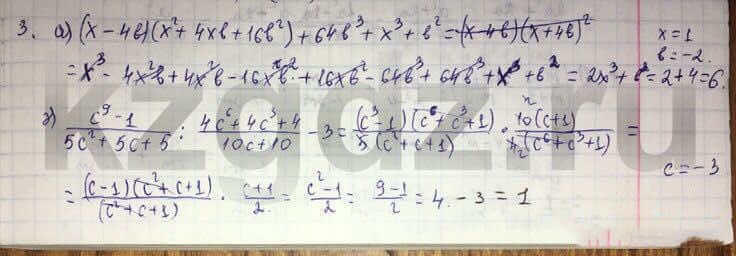 3. а) (x - 4в)(x² + 4xв + 16в²) + 64в³ + x³ + в² = (x - 4в)(x + 4в)²
x = 1
в = -2.
= x³ - 4x²в + 4x²в - 16x²в² + 16xв² - 64в³ + 64в³ + x³ + в² = 2x³ + в² = 2 + 4 = 6.
г) (c⁹ - 1)/(5c² + 5c + 5) : (4c⁶ + 4c³ + 4)/(10c + 10) - 3 = (c³ - 1)(c⁶ + c³ + 1)/(5(c² + c + 1)) · 10(c + 1)/(4₂(c⁶ + c³ + 1)) =
c = -3
= (c - 1)(c² + c + 1)/(c² + c + 1) · (c + 1)/2 = (c² - 1)/2 = (9 - 1)/2 = 4. - 3 = 1
kzgdz.ru